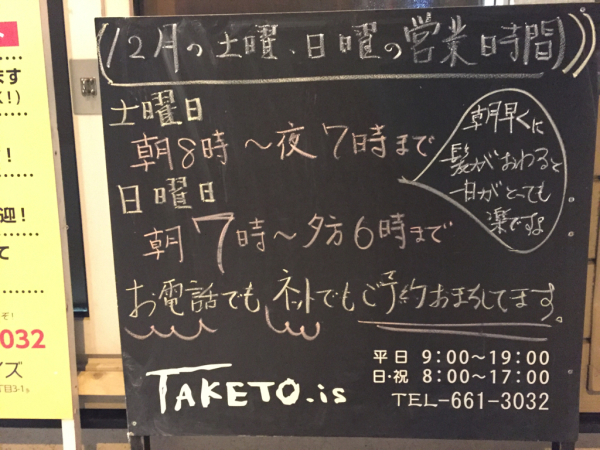 12月の土曜、日曜の営業時間
土曜日
朝8時～夜7時まで
日曜日
朝7時～夕方6時まで
朝早くに
髪がおわると
一日がとっても
楽ですよ
お電話でも ネットでもご予約おまちしてます。
TAKETO.is
平日 9:00～19:00
日・祝 8:00～17:00
TEL-661-3032
ト
ます
!)
!
迎!
て
ぞ!
032
イズ
目3-1